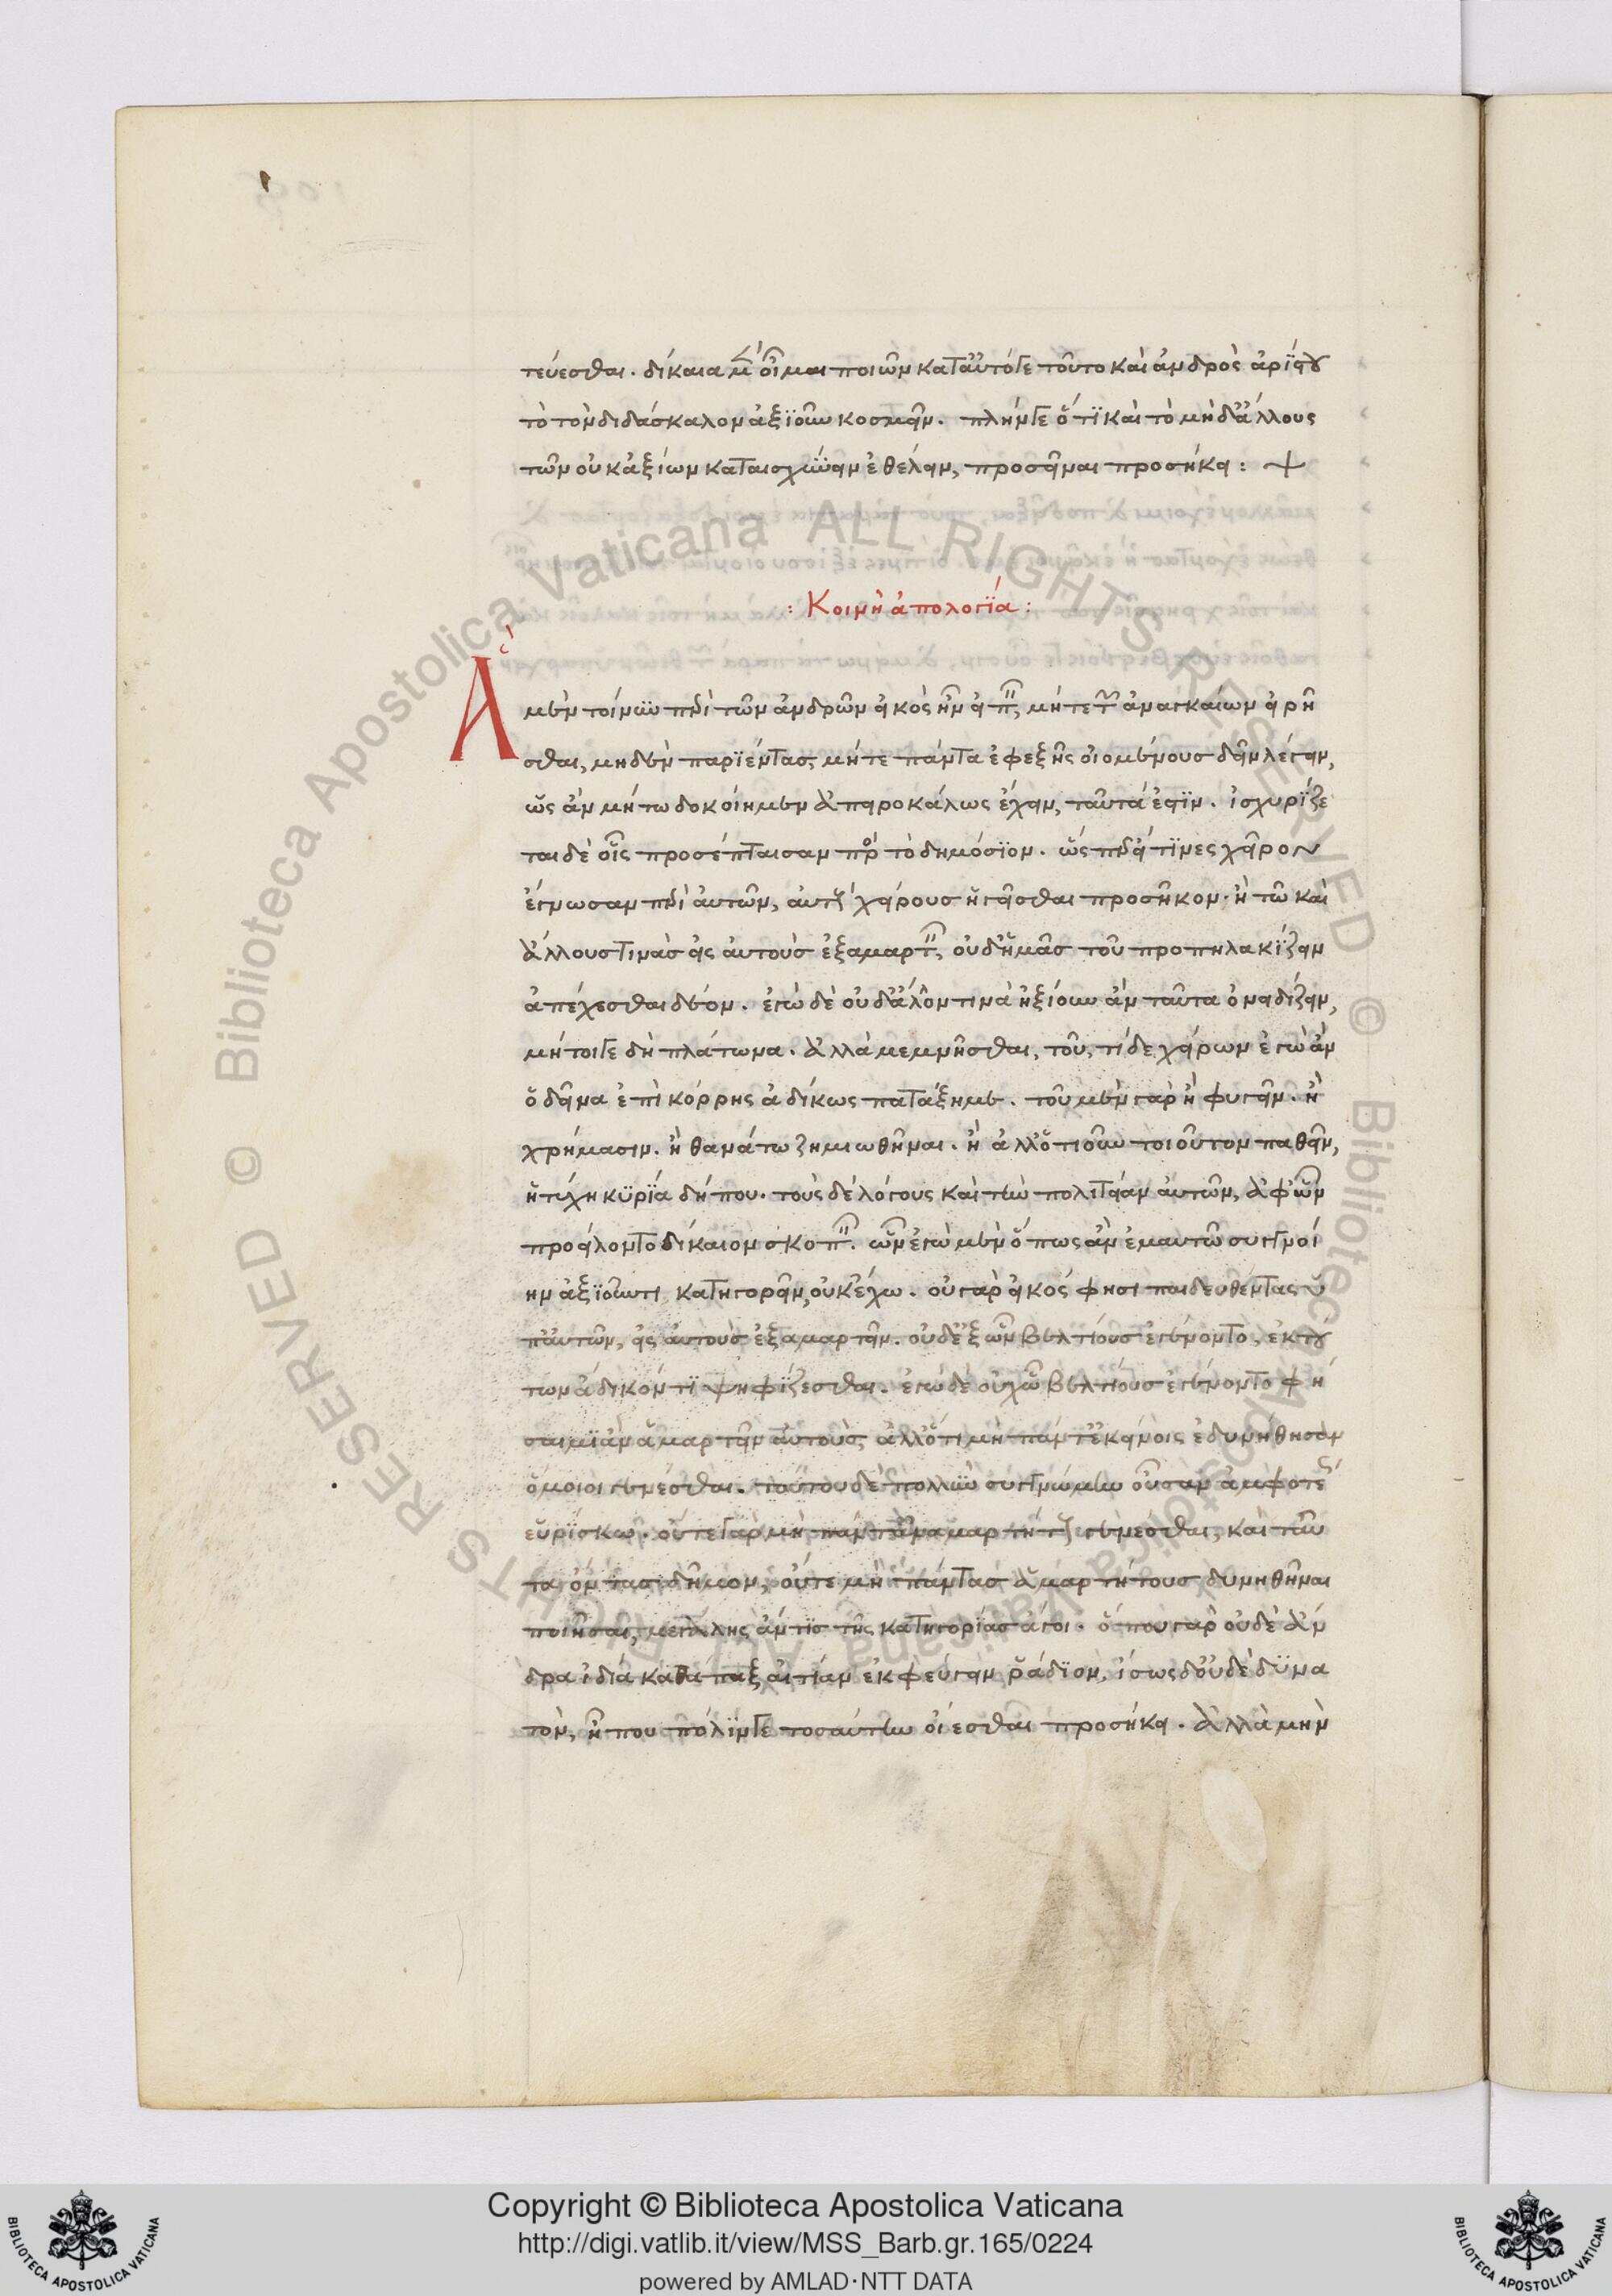 τεύεσθαι. δίκαια μὲν οἶμαι ποιῶν κατ' αὐτό γε τοῦτο καὶ ἀνδρὸς ἀρίστου
τὸ τὸν διδάσκαλον ἀξιοῦν κοσμεῖν. πλήν γε ὅτι καὶ τὸ μηδ' ἄλλους
τῶν οὐκ ἀξίων καταισχύνειν ἐθέλειν, προσεῖναι προσήκει :
: Κοινὴ ἀπολογία :
Ἃ μὲν τοίνυν περὶ τῶν ἀνδρῶν εἰκὸς ἦν εἰπεῖν, μήτε τῶν ἀναγκαίων εἰρῆ
σθαι, μηδὲν παριέντας, μήτε πάντα ἐφεξῆς οἰομένους δεῖν λέγειν,
ὡς ἂν μή τω δοκοίημεν ἀπειροκάλως ἔχειν, ταῦτά ἐστιν. ἰσχυρίζε
ται δὲ οἷς προσέπταισαν πρὸς τὸ δημόσιον. ὥσπερ εἴ τινες χεῖρον
ἔγνωσαν περὶ αὐτῶν, αὐτοὺς χείρους ἡγεῖσθαι προσῆκον. ἢ τῶ καὶ
ἄλλους τινὰς εἰς αὐτοὺς ἐξαμαρτεῖν, οὐδ' ἡμᾶς τοῦ προπηλακίζειν
ἀπέχεσθαι δέον. ἐγὼ δὲ οὐδ' ἄλλον τινὰ ἠξίουν ἂν ταῦτα ὀνειδίζειν,
μήτοι γε δὴ πλάτωνα. ἀλλὰ μεμνῆσθαι, τοῦ, τί δὲ χείρων ἐγὼ ἂν
ὁ δεῖνα ἐπὶ κόρρης ἀδίκως πατάξη με. τοῦ μὲν γὰρ ἢ φυγεῖν. ἢ
χρήμασιν. ἢ θανάτω ζημιωθῆναι. ἢ ἄλλ' ὁτιοῦν τοιοῦτον παθεῖν,
ἡ τύχη κυρία δήπου. τοὺς δὲ λόγους καὶ τὴν πολιτείαν αὐτῶν, ἀφ' ὧν
προείλοντο δίκαιον σκοπεῖν. ὧν ἐγὼ μὲν ὅπως ἂν ἐμαυτῶ συγγνοί
ην ἀξιοῦντι κατηγορεῖν, οὐκ ἔχω. οὐ γὰρ εἰκός φησι παιδευθέντας ὑ
π' αὐτῶν, εἰς αὐτοὺς ἐξαμαρτεῖν. οὐδὲ ἐξ ὧν βελτίους ἐγένοντο, ἐκ τού
των ἄδικόν τι ψηφίζεσθαι. ἐγὼ δὲ οὐχ ὧ βελτίους ἐγένοντο φή
σαιμι ἂν ἁμαρτεῖν αὐτοὺς, ἀλλ' ὅτι μὴ πάντ' ἐκείνοις ἐδυνήθησαν
ὅμοιοι γενέσθαι. ταύτου δὲ πολλὴν συγγνώμην οὖσαν ἀμφοτέροις
εὑρίσκω. οὔτε γὰρ μὴ πάντ' ἀναμαρτήτους γενέσθαι, καὶ ταῦ
τα ὄντας δῆμον, οὔτε μὴ πάντας ἀναμαρτήτους δυνηθῆναι
ποιῆσαι, μεγάλης ἄν τις τῆς κατηγορίας ἄγοι. ὅπου γὰρ οὐδὲ ἄν
δρα ἰδία καθάπαξ αἰτίαν ἐκφεύγειν ῥάδιον, ἴσως δ' οὐδὲ δυνα
τὸν, ἦ που πόλιν γε τοσαύτην οἴεσθαι προσήκει. ἀλλὰ μὴν
Copyright © Biblioteca Apostolica Vaticana
http://digi.vatlib.it/view/MSS_Barb.gr.165/0224
powered by AMLAD·NTT DATA